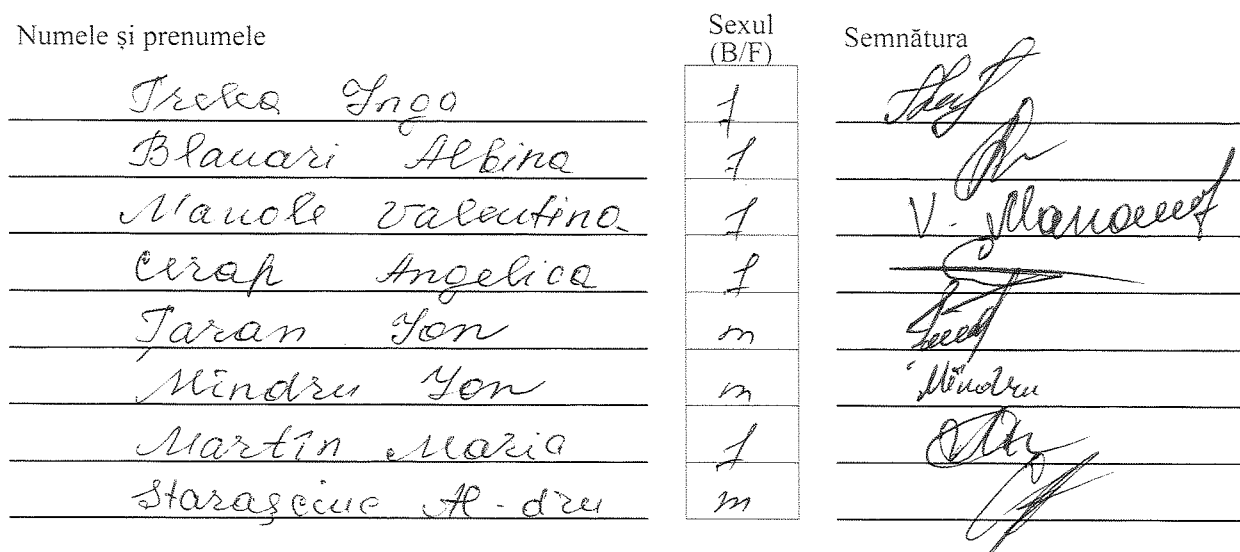 Numele și prenumele Sexul (B/F) Semnătura
Inga f
Albina f
Manole Valentina f V.
Cerap Angelica f
Țaran Ion m
Mîndru Ion m Mîndru
Martîn Maria f
Starașciuc Al-dru m